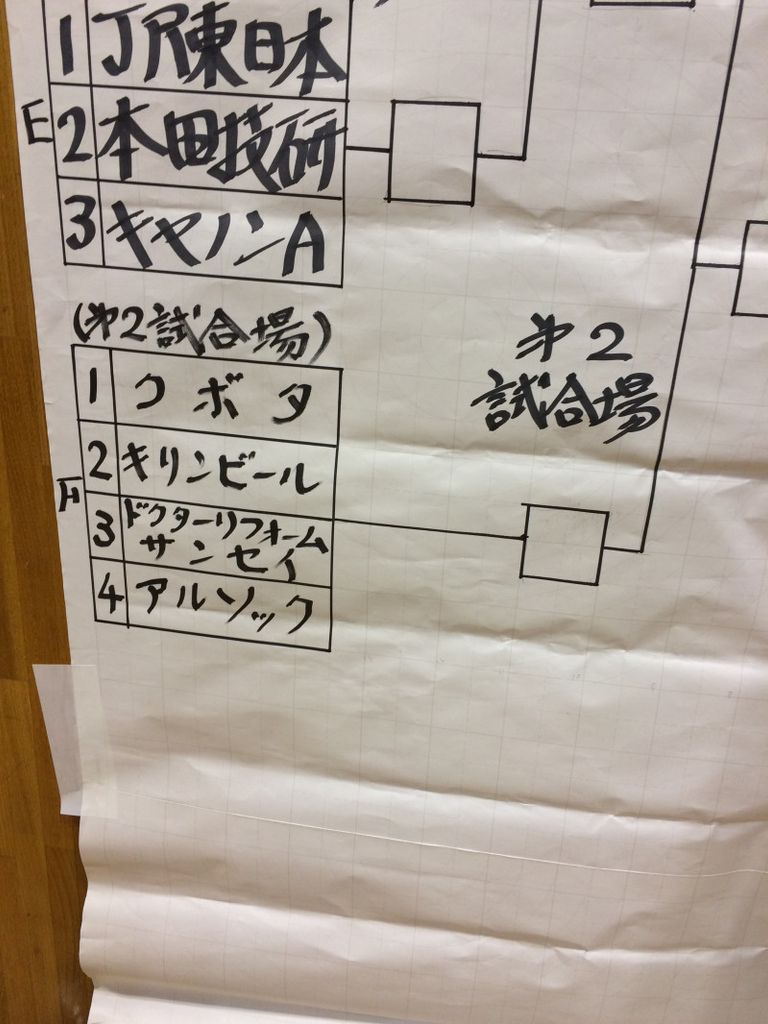 E
1 JR東日本
2 本田技研
3 キヤノンA
(第2試合場)
F
1 クボタ
2 キリンビール
3 ドクターリフォーム
サンセイ
4 アルソック
第2
試合場